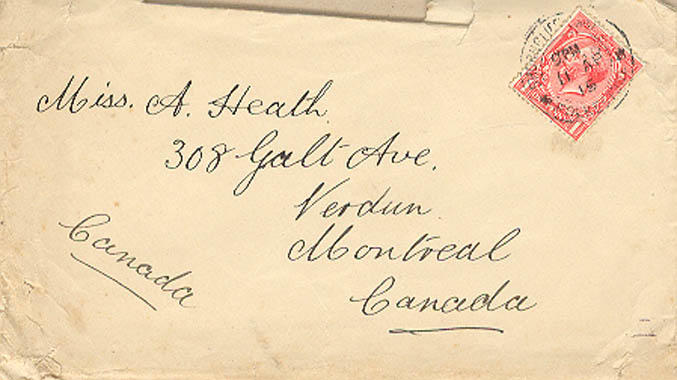 Miss. A. Heath
308 Galt Ave.
Verdun.
Montreal
Canada
Canada